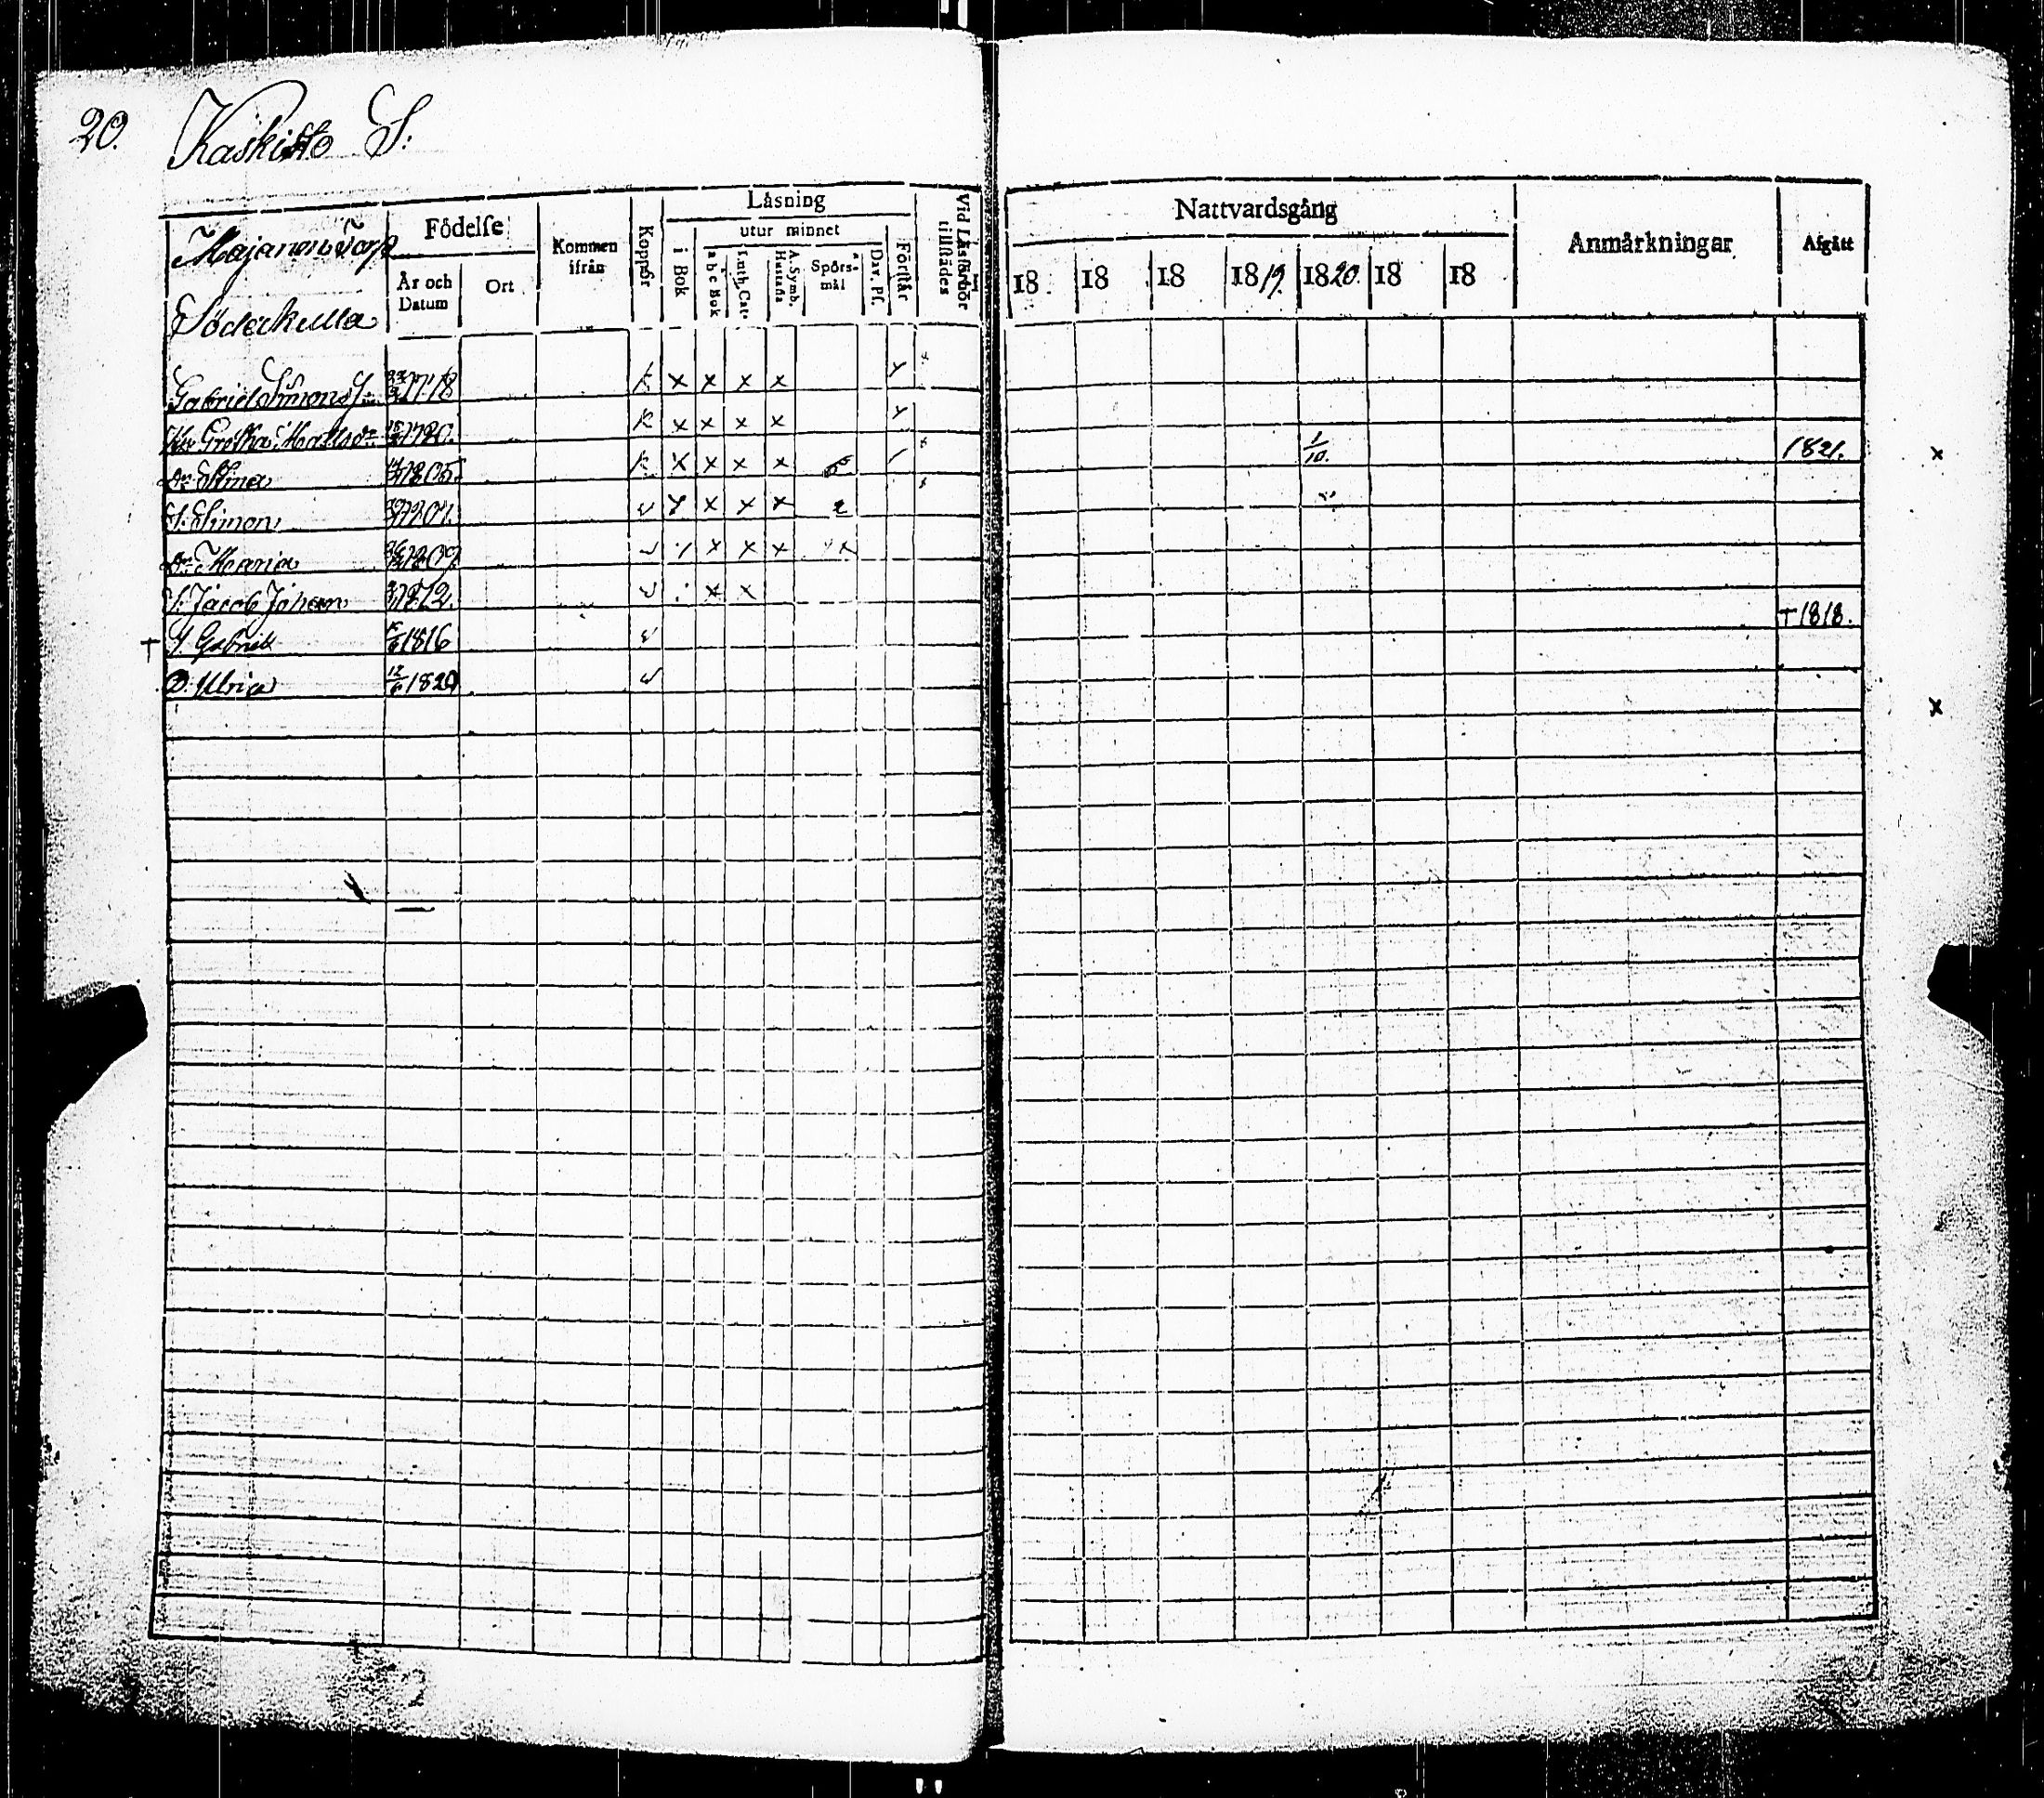 20. Kaskisto S:
Majanen Torp
Söderkulla
Födelse
År och Datum
Ort
Kommen ifrån
Koppor
Läsning
i Bok
utur minnet
a b c Bok
Luth. Cat.
A. Symb. Hustafla
Spörsmål
Dav. Ps.
Förstår
Vid Läsförhör tillstädes
Nattvardsgång
18 18 18 1819. 1820. 18 18
Anmärkningar
Afgått
Gabriel Simonss. K x x x x
Hu Gretha Mattsdr K x x x x
Dr Stina 1805. K x x x 1/10. 1821. x
S. Simon x x x 2
Dr Maria 1809 x x x
S. Jacob Johan 1812. x x
† S. Gabriel 1816 † 1818.
D. Ulrica 12/6 1820
x